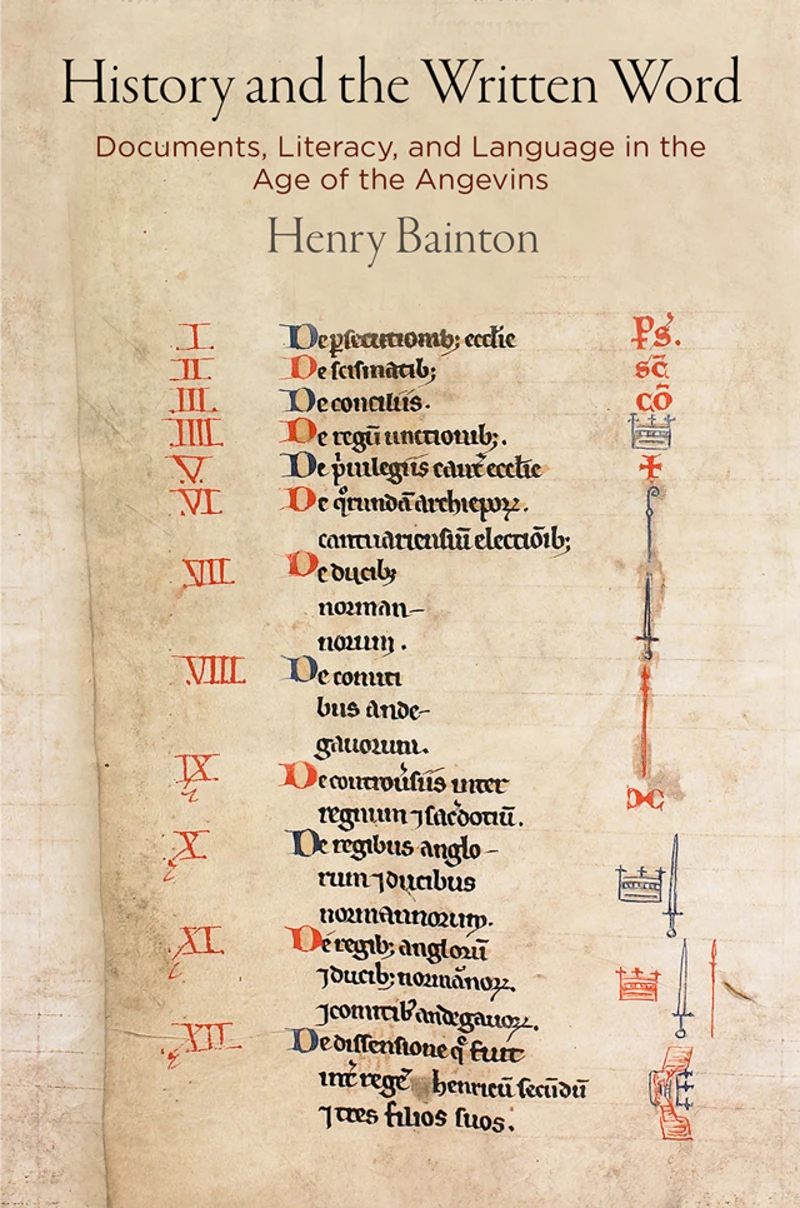 History and the Written Word
Documents, Literacy, and Language in the
Age of the Angevins
Henry Bainton
I. De ꝑsecutionib; eccłie ps̉.
II De scismatib; sc̄
III. De conciliis. cō
IIII De regū unctionib;.
V. De p̉uilegiis cant̉ eccłie
VI De q̉rundā archiepoꝝ.
cantuariensiū electiōib;
VII De ducib;
norman-
norum.
VIII De comiti
bus ande-
gauorum.
IX De controủsiis inter
regnum ⁊ sac̉dotiū.
X De regibus anglo-
rum ⁊ ducibus
normannorum.
XI De regib; anglorū
⁊ ducib; normānoꝝ.
⁊ comitib; andegauoꝝ.
XII De dissensione q̄ fuit
int̉ regē henricū secūdū
⁊ tres filios suos.